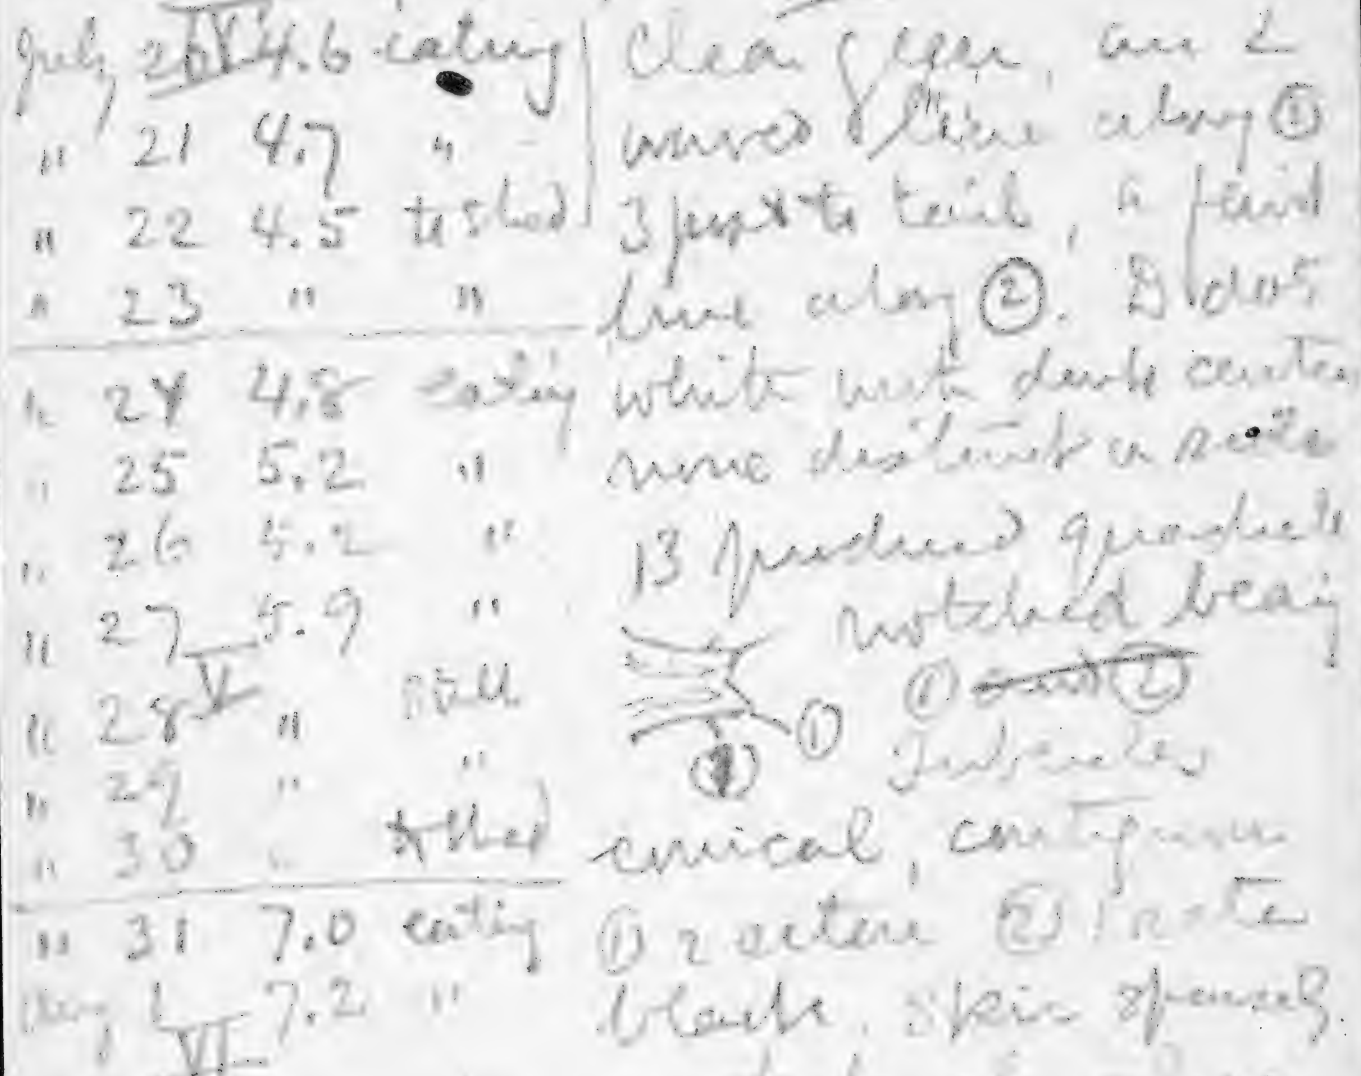 July 20 IV 4.6 eating
" 21 4.7 "
" 22 4.5 to shed
" 23 " "
" 24 4.8 eating
" 25 5.2 "
" 26 5.2 "
" 27 5.9 "
V
" 28 " still
" 29 " "
" 30 " to shed
" 31 7.0 eating
Aug 1 7.2 "
VI
Clear green, an L
waved line along ①
3 to tail, a faint
line along ②. D dots
white with dark center
more distinct
13 produced quadrate
notched being
① and ②
①
①
Tubercles
conical,
① 2 setae ② 1 seta
black, skin sparsely